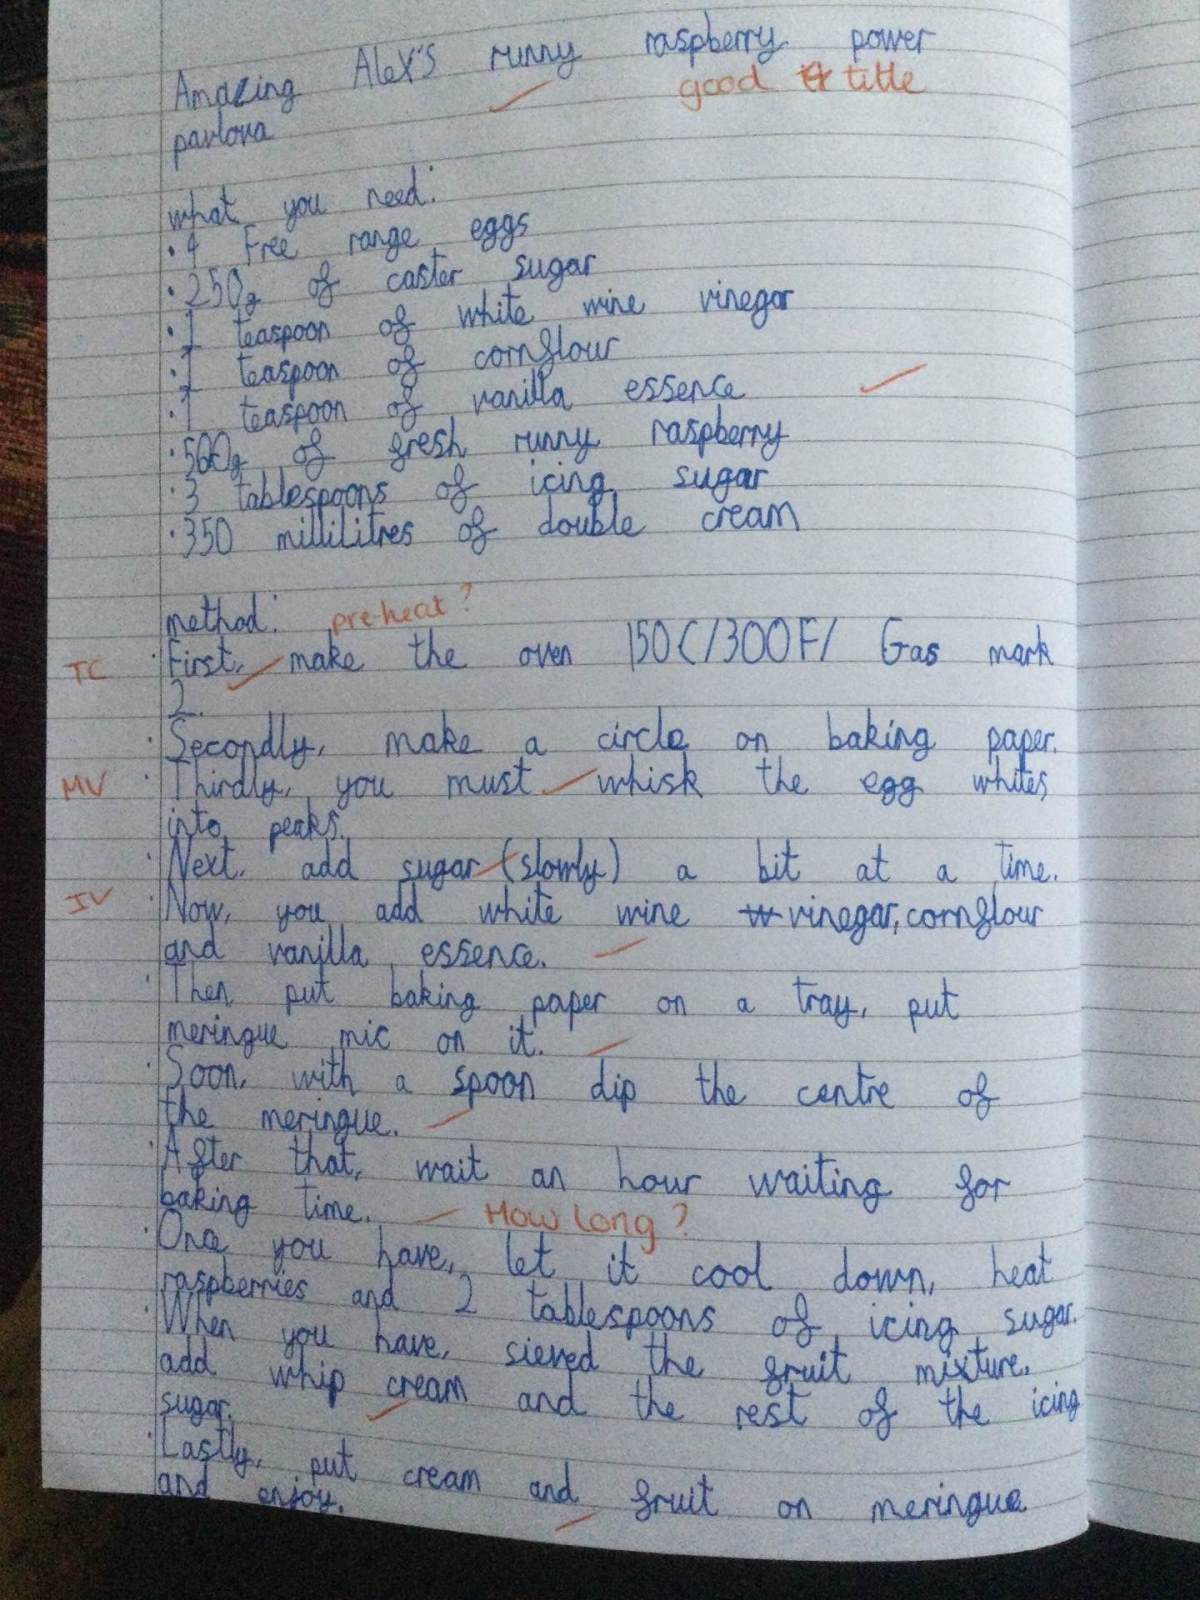 Amazing Alex's runny raspberry power
good title
pavlova
what you need:
· 4 Free range eggs
· 250g of caster sugar
· 1 teaspoon of white wine vinegar
· 1 teaspoon of cornflour
· 1 teaspoon of vanilla essence
· 500g of fresh runny raspberry
· 3 tablespoons of icing sugar
· 350 millilitres of double cream
method: pre-heat?
TC · First, make the oven 150C/300F/ Gas mark
2.
· Secondly, make a circle on baking paper.
MV · Thirdly, you must whisk the egg whites
into peaks.
· Next, add sugar (slowly) a bit at a time.
IV · Now, you add white wine vinegar, cornflour
and vanilla essence.
· Then put baking paper on a tray, put
meringue mic on it.
· Soon, with a spoon dip the centre of
the meringue.
· After that, wait an hour waiting for
baking time. How long?
· Once you have, let it cool down, heat
raspberries and 2 tablespoons of icing sugar.
· When you have, sieved the fruit mixture,
add whip cream and the rest of the icing
sugar.
· Lastly, put cream and fruit on meringue
and enjoy.